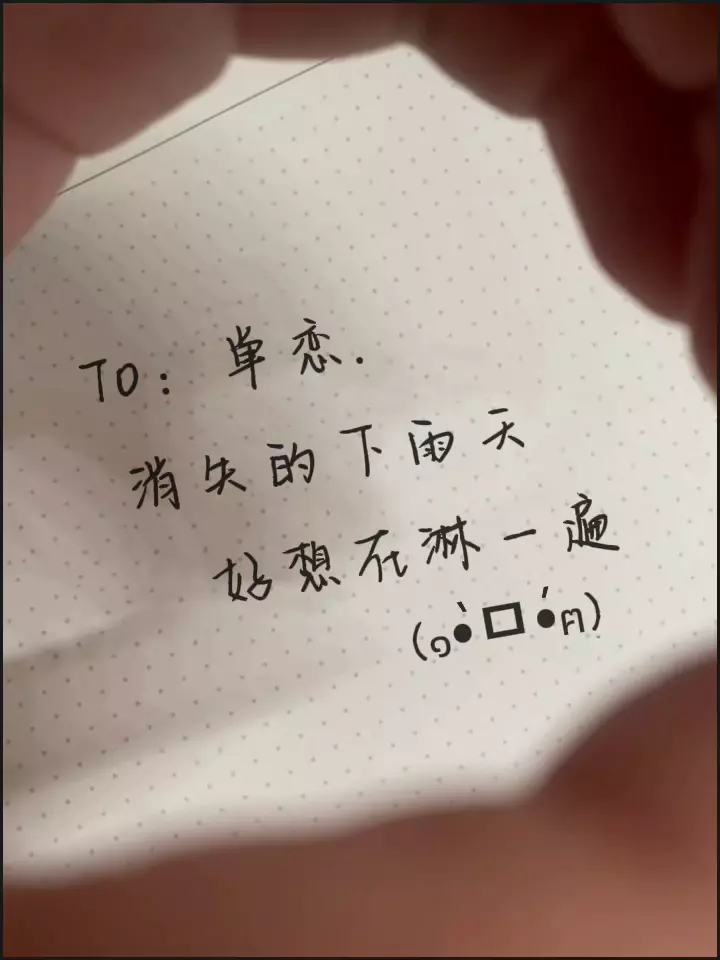 TO: 单恋.
消失的下雨天
好想在淋一遍
(ง•̀ロ•́ค)